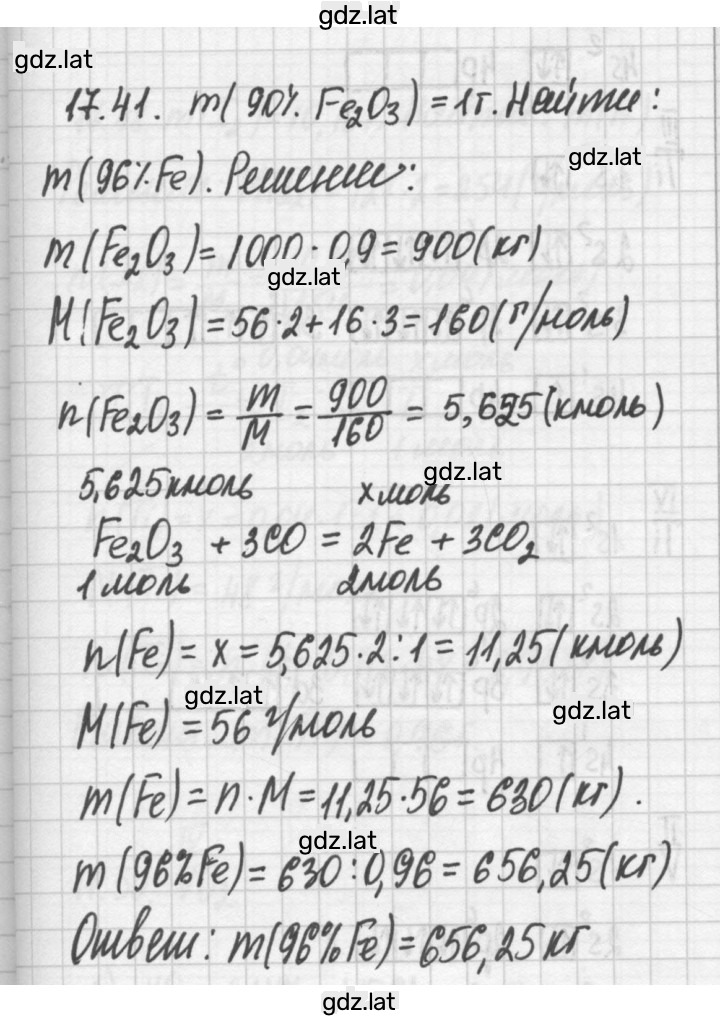 gdz.lat
gdz.lat
17.41. m(90% Fe₂O₃) = 1т. Найти:
gdz.lat
m(96% Fe). Решение:
m(Fe₂O₃) = 1000 · 0,9 = 900(кг)
gdz.lat
M(Fe₂O₃) = 56·2+16·3 = 160(г/моль)
n(Fe₂O₃) = m/M = 900/160 = 5,625(кмоль)
gdz.lat
5,625кмоль x моль
Fe₂O₃ + 3CO = 2Fe + 3CO₂
1 моль 2моль
n(Fe) = x = 5,625·2:1 = 11,25(кмоль)
gdz.lat
gdz.lat
M(Fe) = 56 г/моль
m(Fe) = n·M = 11,25·56 = 630(кг).
gdz.lat
m(96%Fe) = 630:0,96 = 656,25(кг)
Ответ: m(96%Fe) = 656,25кг
gdz.lat